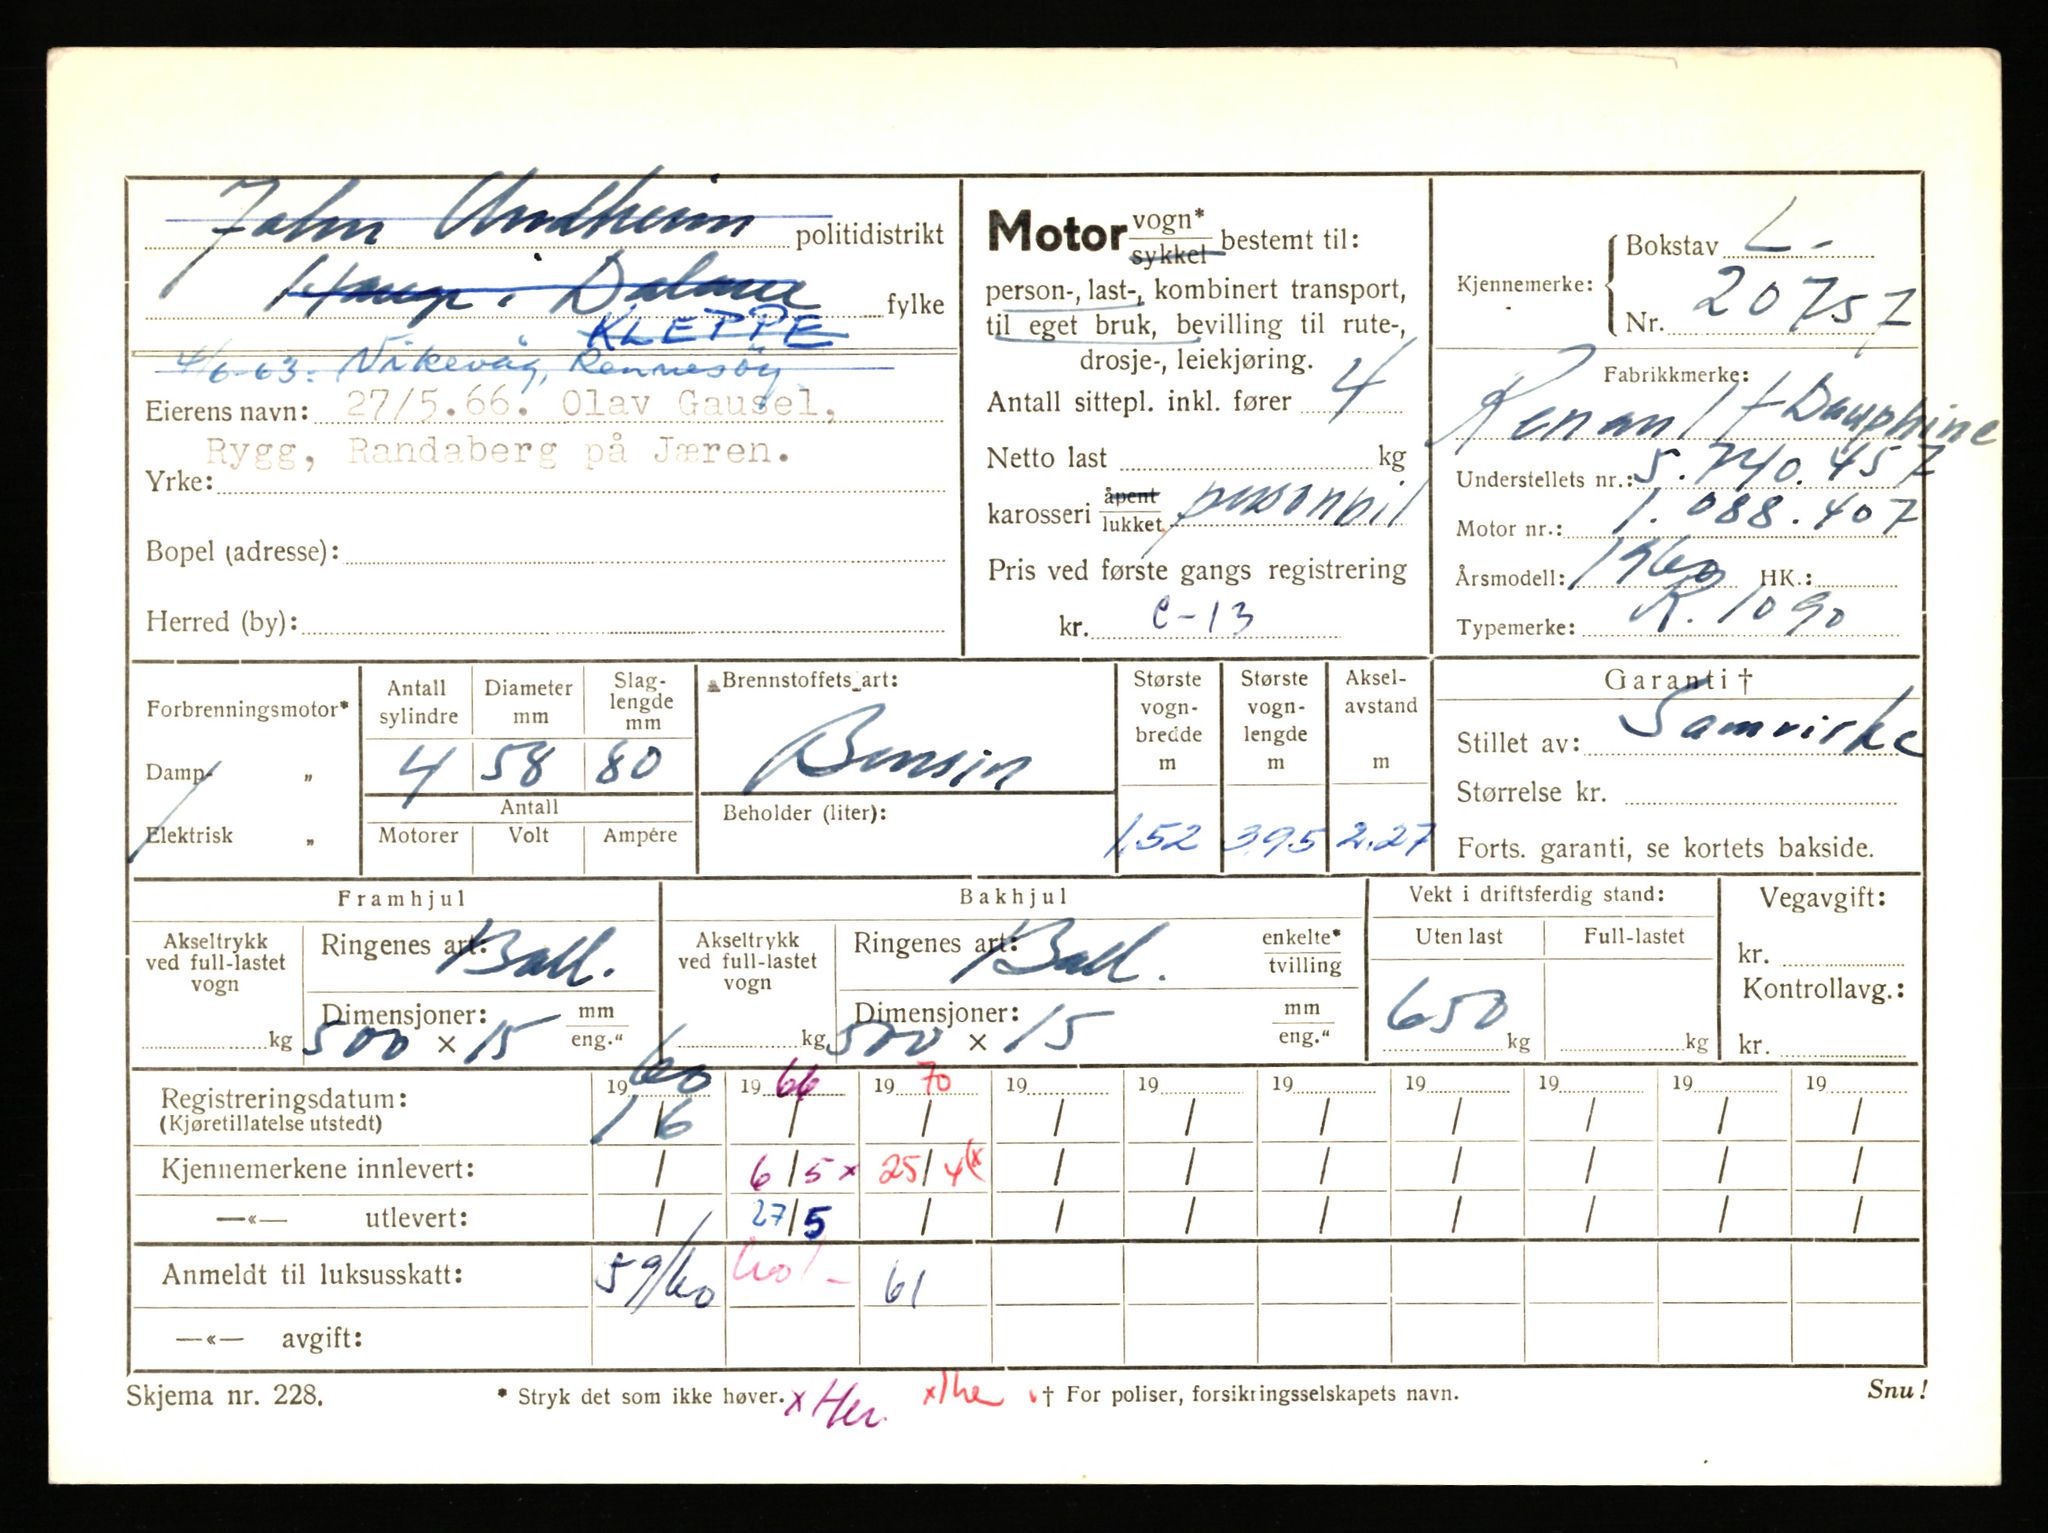 John politidistrikt
Haug i Dalane fylke
KLEPPE
4/6-63. Vikevåg, Rennesøy
Eierens navn: 27/5.66. Olav Gausel,
Rygg, Randaberg på Jæren.
Yrke:
Bopel (adresse):
Herred (by):
Motor vogn* sykkel bestemt til:
person-, last-, kombinert transport,
til eget bruk, bevilling til rute-,
drosje-, leiekjøring.
Antall sittepl. inkl. fører 4
Netto last kg
karosseri åpent lukket personbil
Pris ved første gangs registrering
kr. C-13
Kjennemerke: Bokstav L-
Nr. 20757
Fabrikkmerke:
Renault Dauphine
Understellets nr.: 5.740.457
Motor nr.: 1.088.407
Årsmodell: 1960 HK.:
Typemerke: R. 1090
Forbrenningsmotor*
Damp- „
Elektrisk „
Antall sylindre
4
Diameter mm
58
Slaglengde mm
80
Antall
Motorer Volt Ampére
Brennstoffets art:
Bensin
Beholder (liter):
Største vognbredde m
1.52
Største vognlengde m
3.95
Akselavstand m
2.27
Garanti †
Stillet av: Samvirke
Størrelse kr.
Forts. garanti, se kortets bakside.
Framhjul
Akseltrykk ved full-lastet vogn
kg
Ringenes art: Ball.
Dimensjoner: mm
500 × 15 eng.“
Bakhjul
Akseltrykk ved full-lastet vogn
kg
Ringenes art: Ball. enkelte* tvilling
Dimensjoner: mm
500 × 15 eng.“
Vekt i driftsferdig stand:
Uten last Full-lastet
650 kg kg
Vegavgift:
kr.
Kontrollavg.:
kr.
19 60 19 66 19 70 19 19 19 19 19 19 19
Registreringsdatum: 1/6 / / / / / / / / /
(Kjøretillatelse utstedt)
Kjennemerkene innlevert: / 6/5 x 25/4 (x / / / / / / /
—«— utlevert: / 27/5 / / / / / / / /
Anmeldt til luksusskatt: 59/60 60/- 61
—«— avgift:
Skjema nr. 228. * Stryk det som ikke høver. x Her. † For poliser, forsikringsselskapets navn. Snu!